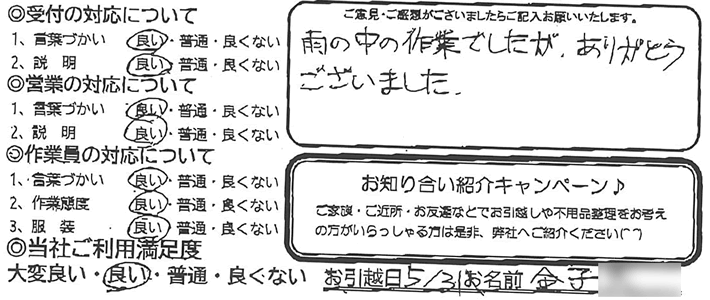 ◎受付の対応について
1、言葉づかい 良い・普通・良くない
2、説 明 良い・普通・良くない
◎営業の対応について
1、言葉づかい 良い・普通・良くない
2、説 明 良い・普通・良くない
◎作業員の対応について
1、言葉づかい 良い・普通・良くない
2、作業態度 良い・普通・良くない
3、服 装 良い・普通・良くない
◎当社ご利用満足度
大変良い・良い・普通・良くない
ご意見・ご感想がございましたらご記入お願いいたします。
雨の中の作業でしたが、ありがとう
ございました.
お知り合い紹介キャンペーン♪
ご家族・ご近所・お友達などでお引越しや不用品整理をお考え
の方がいらっしゃる方は是非、弊社へご紹介ください(^^)
お引越日 5/31 お名前 金子